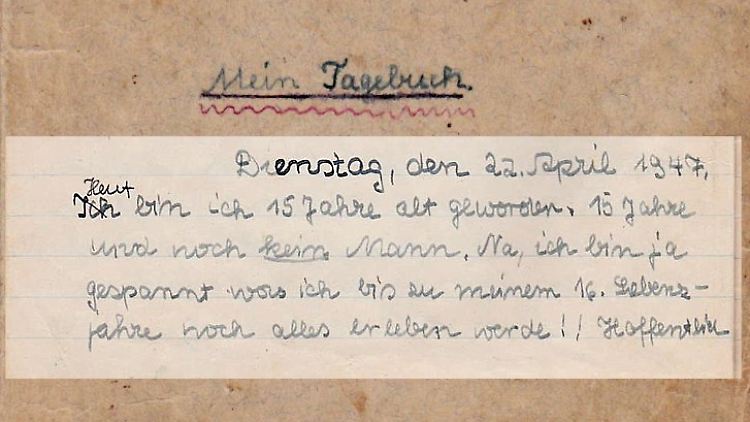 Mein Tagebuch.
Dienstag, den 22. April 1947.
Heut
Ich bin ich 15 Jahre alt geworden. 15 Jahre
und noch kein Mann. Na, ich bin ja
gespannt was ich bis zu meinem 16. Lebens-
jahre noch alles erleben werde!! Hoffentlich